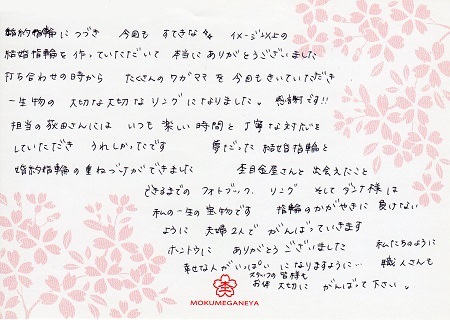 婚約指輪につづき 今回も すてきな イメージ以上の
結婚指輪を 作っていただいて 本当に ありがとうございました
打ち合わせの時から たくさんの ワガママ を 今回もきいていただき
一生物の 大切な大切な リングに なりました。 感謝です!!
担当の 荻田さんには いつも 楽しい 時間と 丁寧な対応を
していただき うれしかったです 夢だった 結婚指輪と
婚約指輪の 重ねづけができました 杢目金屋さんと 出会えたこと
できるまでの フォトブック、リング そして ダンナ様は
私の一生の宝物です 指輪のかがやきに 負けない
ように 夫婦2人で がんばっていきます
ホントウに ありがとう ございました 私たちのように
幸せな人が いっぱい に なりますように… 職人さんも
スタッフの皆様も
お体 大切に がんばって 下さい。
MOKUMEGANEYA